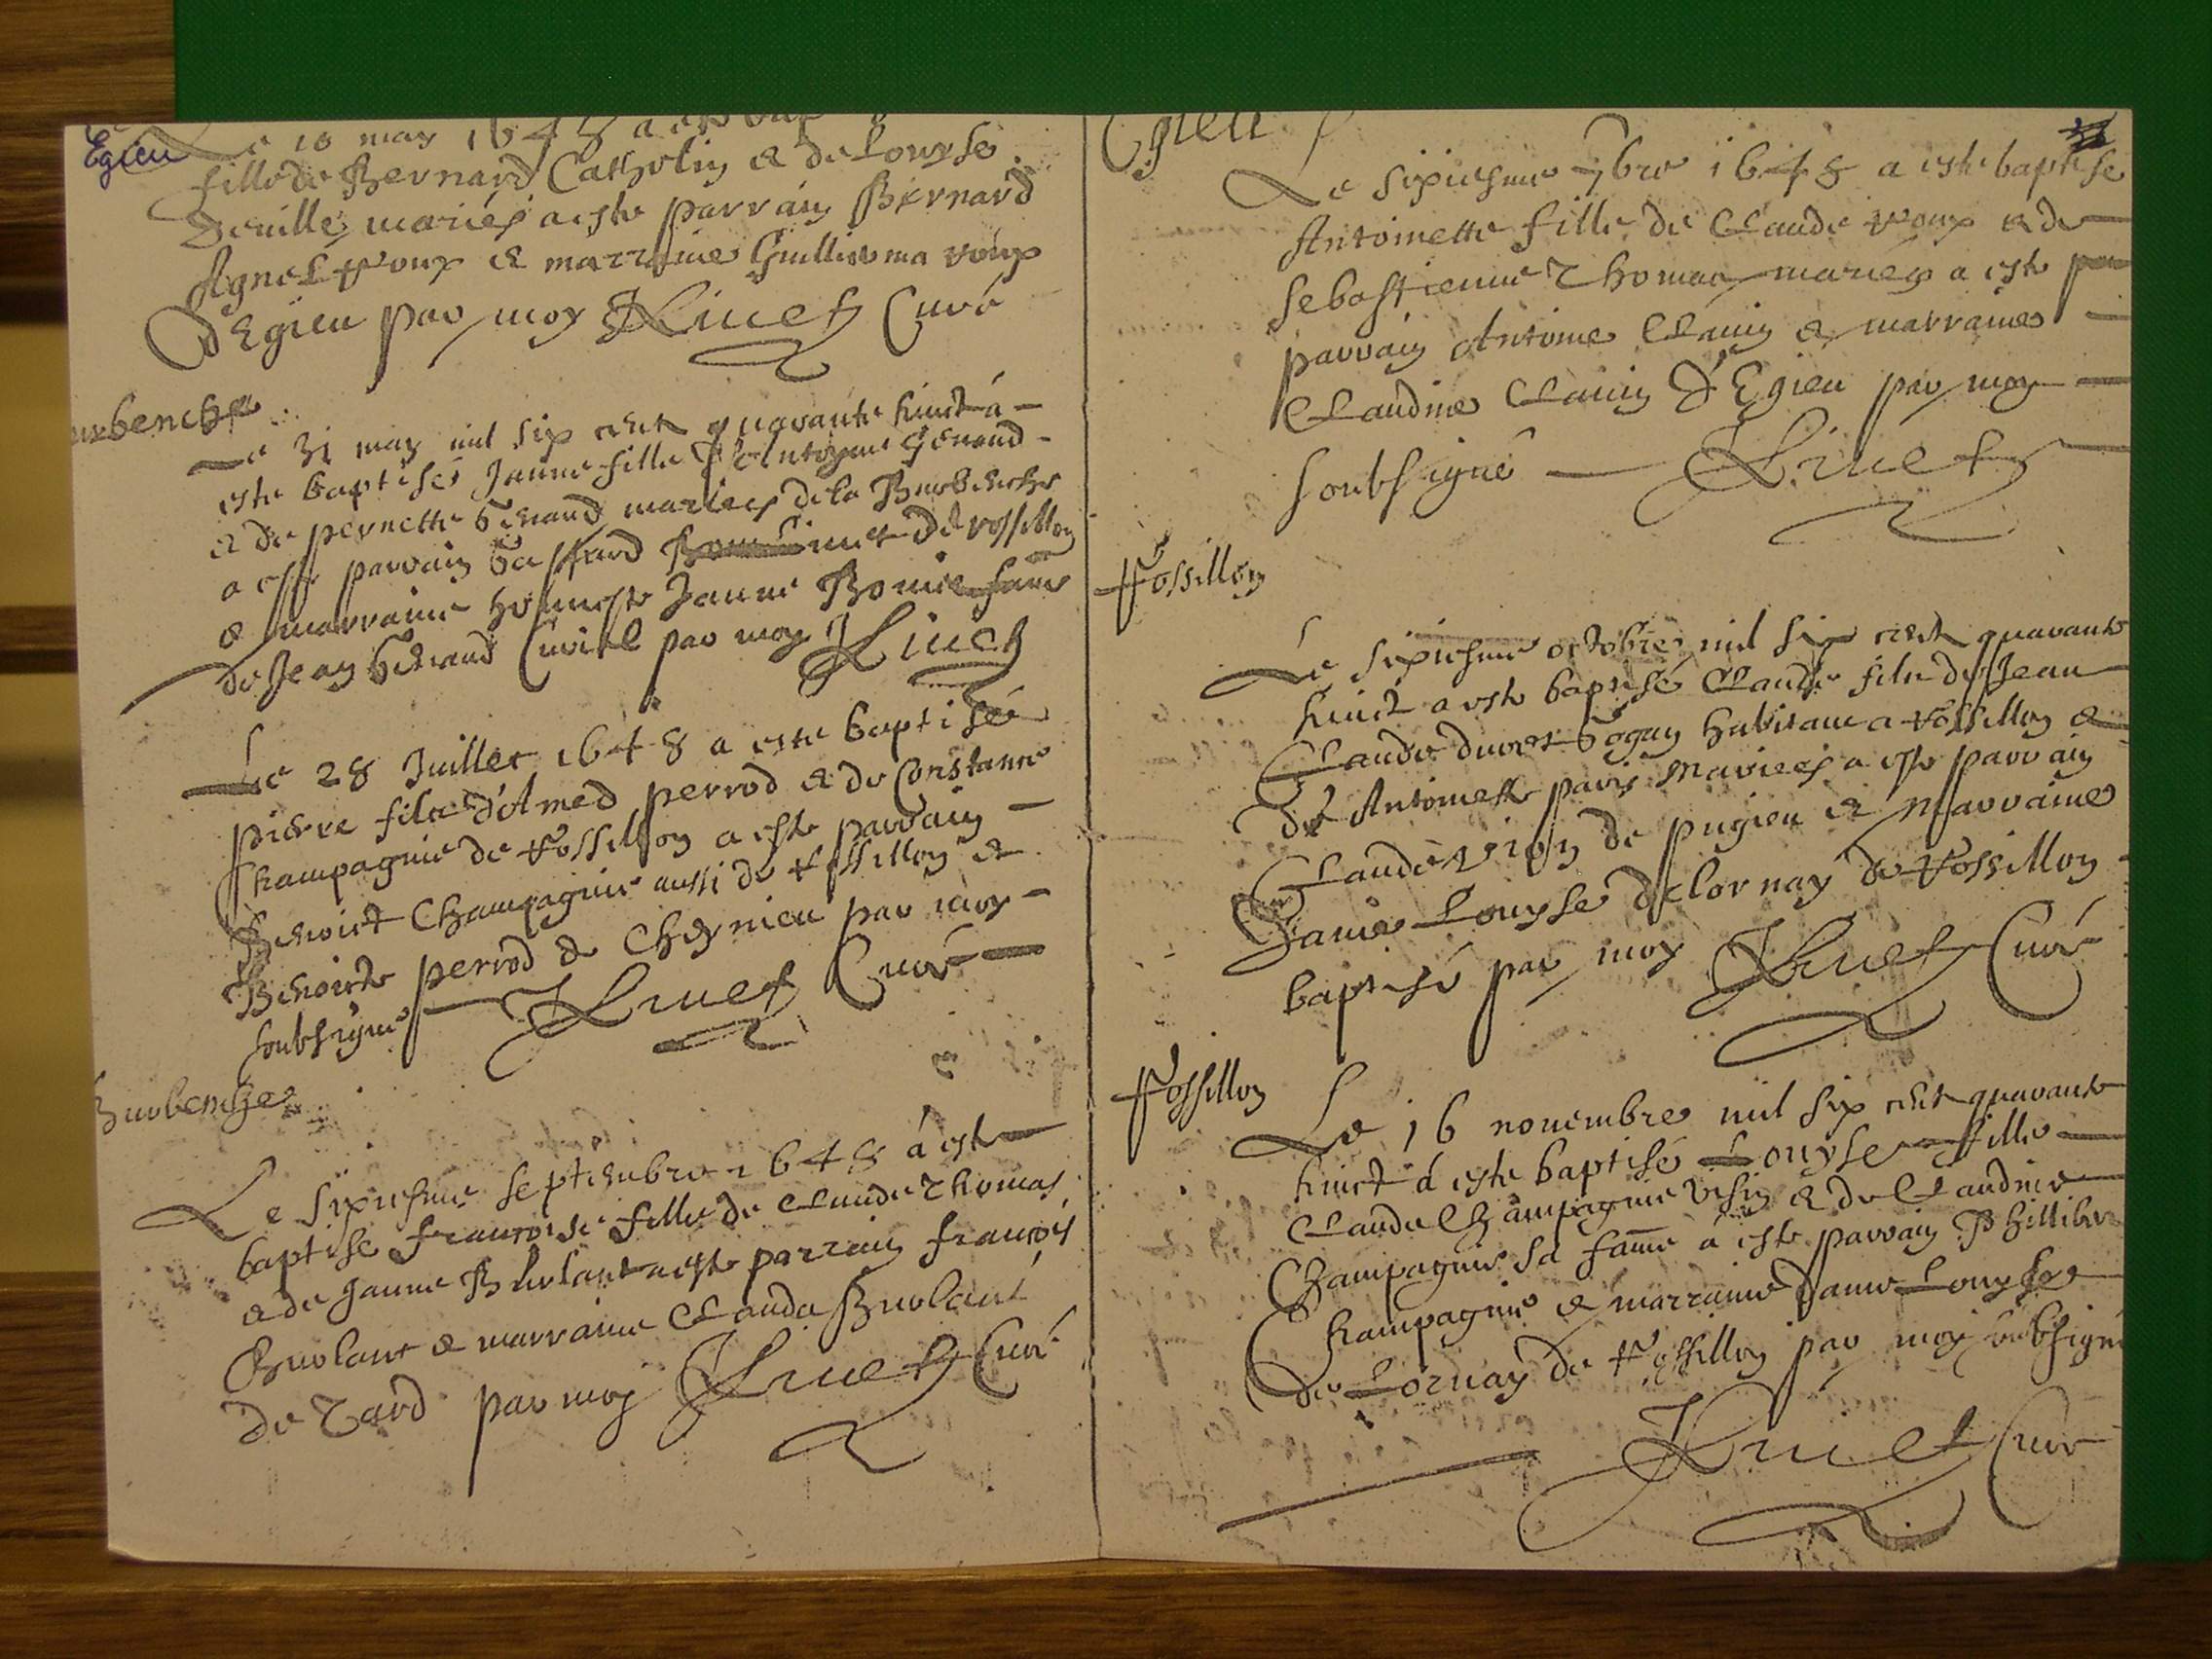 Egieu
Le 10 may 1648 a este
fille de Bernard Catholin & de Louyse
Deville mariés a este parrain Bernard
Agnel Voux & marraine Guillioma Voux
D'Egieu par moy Livet Curé
urbenche
Le 31 may mil six cent quarante huict à –
este baptisée Janne fille d'Antoyne Genand –
& de pernette Genand mariés de la Burbenche
a este parrain Gaspard de Vossillon
& marraine honneste Janne Bonie fame
de Jean Genand Curial par moy Livet
Le 28 Juillet 1648 a este baptisé
pierre filz d'Amed perrod & de Constanne
Champagnie de Vossillon a este parrain –
Benoict Champagnie aussi de Vossillon &
Benoicte perrod de Cheynieu par moy –
soubsigné Livet Curé
Burbenche
Le sixiesme septembre 1648 à este
baptise francoise fille de Claude Thomas
& de Janne Burlant a este parrain francois
Burlant & marraine Clauda Burlant
de Tard par moy Livet Curé
Egieu
Le sixiesme 7bre 1648 a este baptise
Antoinette fille de Claude Voux & de
sebastienne Thomas mariés a este
parrain Antoine Clanin & marraine –
Claudine Clanin d'Egieu par moy –
soubsigné Livet
Vossillon
Le sixiesme octobre mil six cent quarante
huict a este baptisé Claude filz de Jean
Claude Gogan habitant a Vossillon &
de Antoinette paris Mariés a este parrain
Claude de pugieu & Marraine
Dame Louyse delornay de Vossillon
baptisé par moy Livet Curé
Vossillon
Le 16 novembre mil six cent quarante
huict à este baptisé Louyse fille
Claude Champagnie & de Claudine
Champagnie sa fame à este parrain Phillibert
Champagnie & marraine Dame Louyse
de Lornay de Vossillon par moy soubsigné
Livet Curé